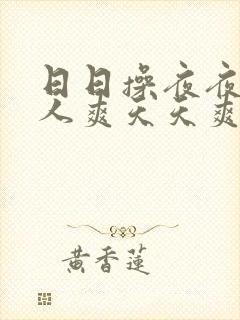 日日操夜夜
人爽天天爽
黄香莲